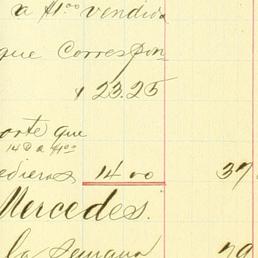 a $1.00 vendida
que Correspon
$ 23.25
orte que
14 D a $1.00
edieras 14 00 37
Mercedes.
la semana 29